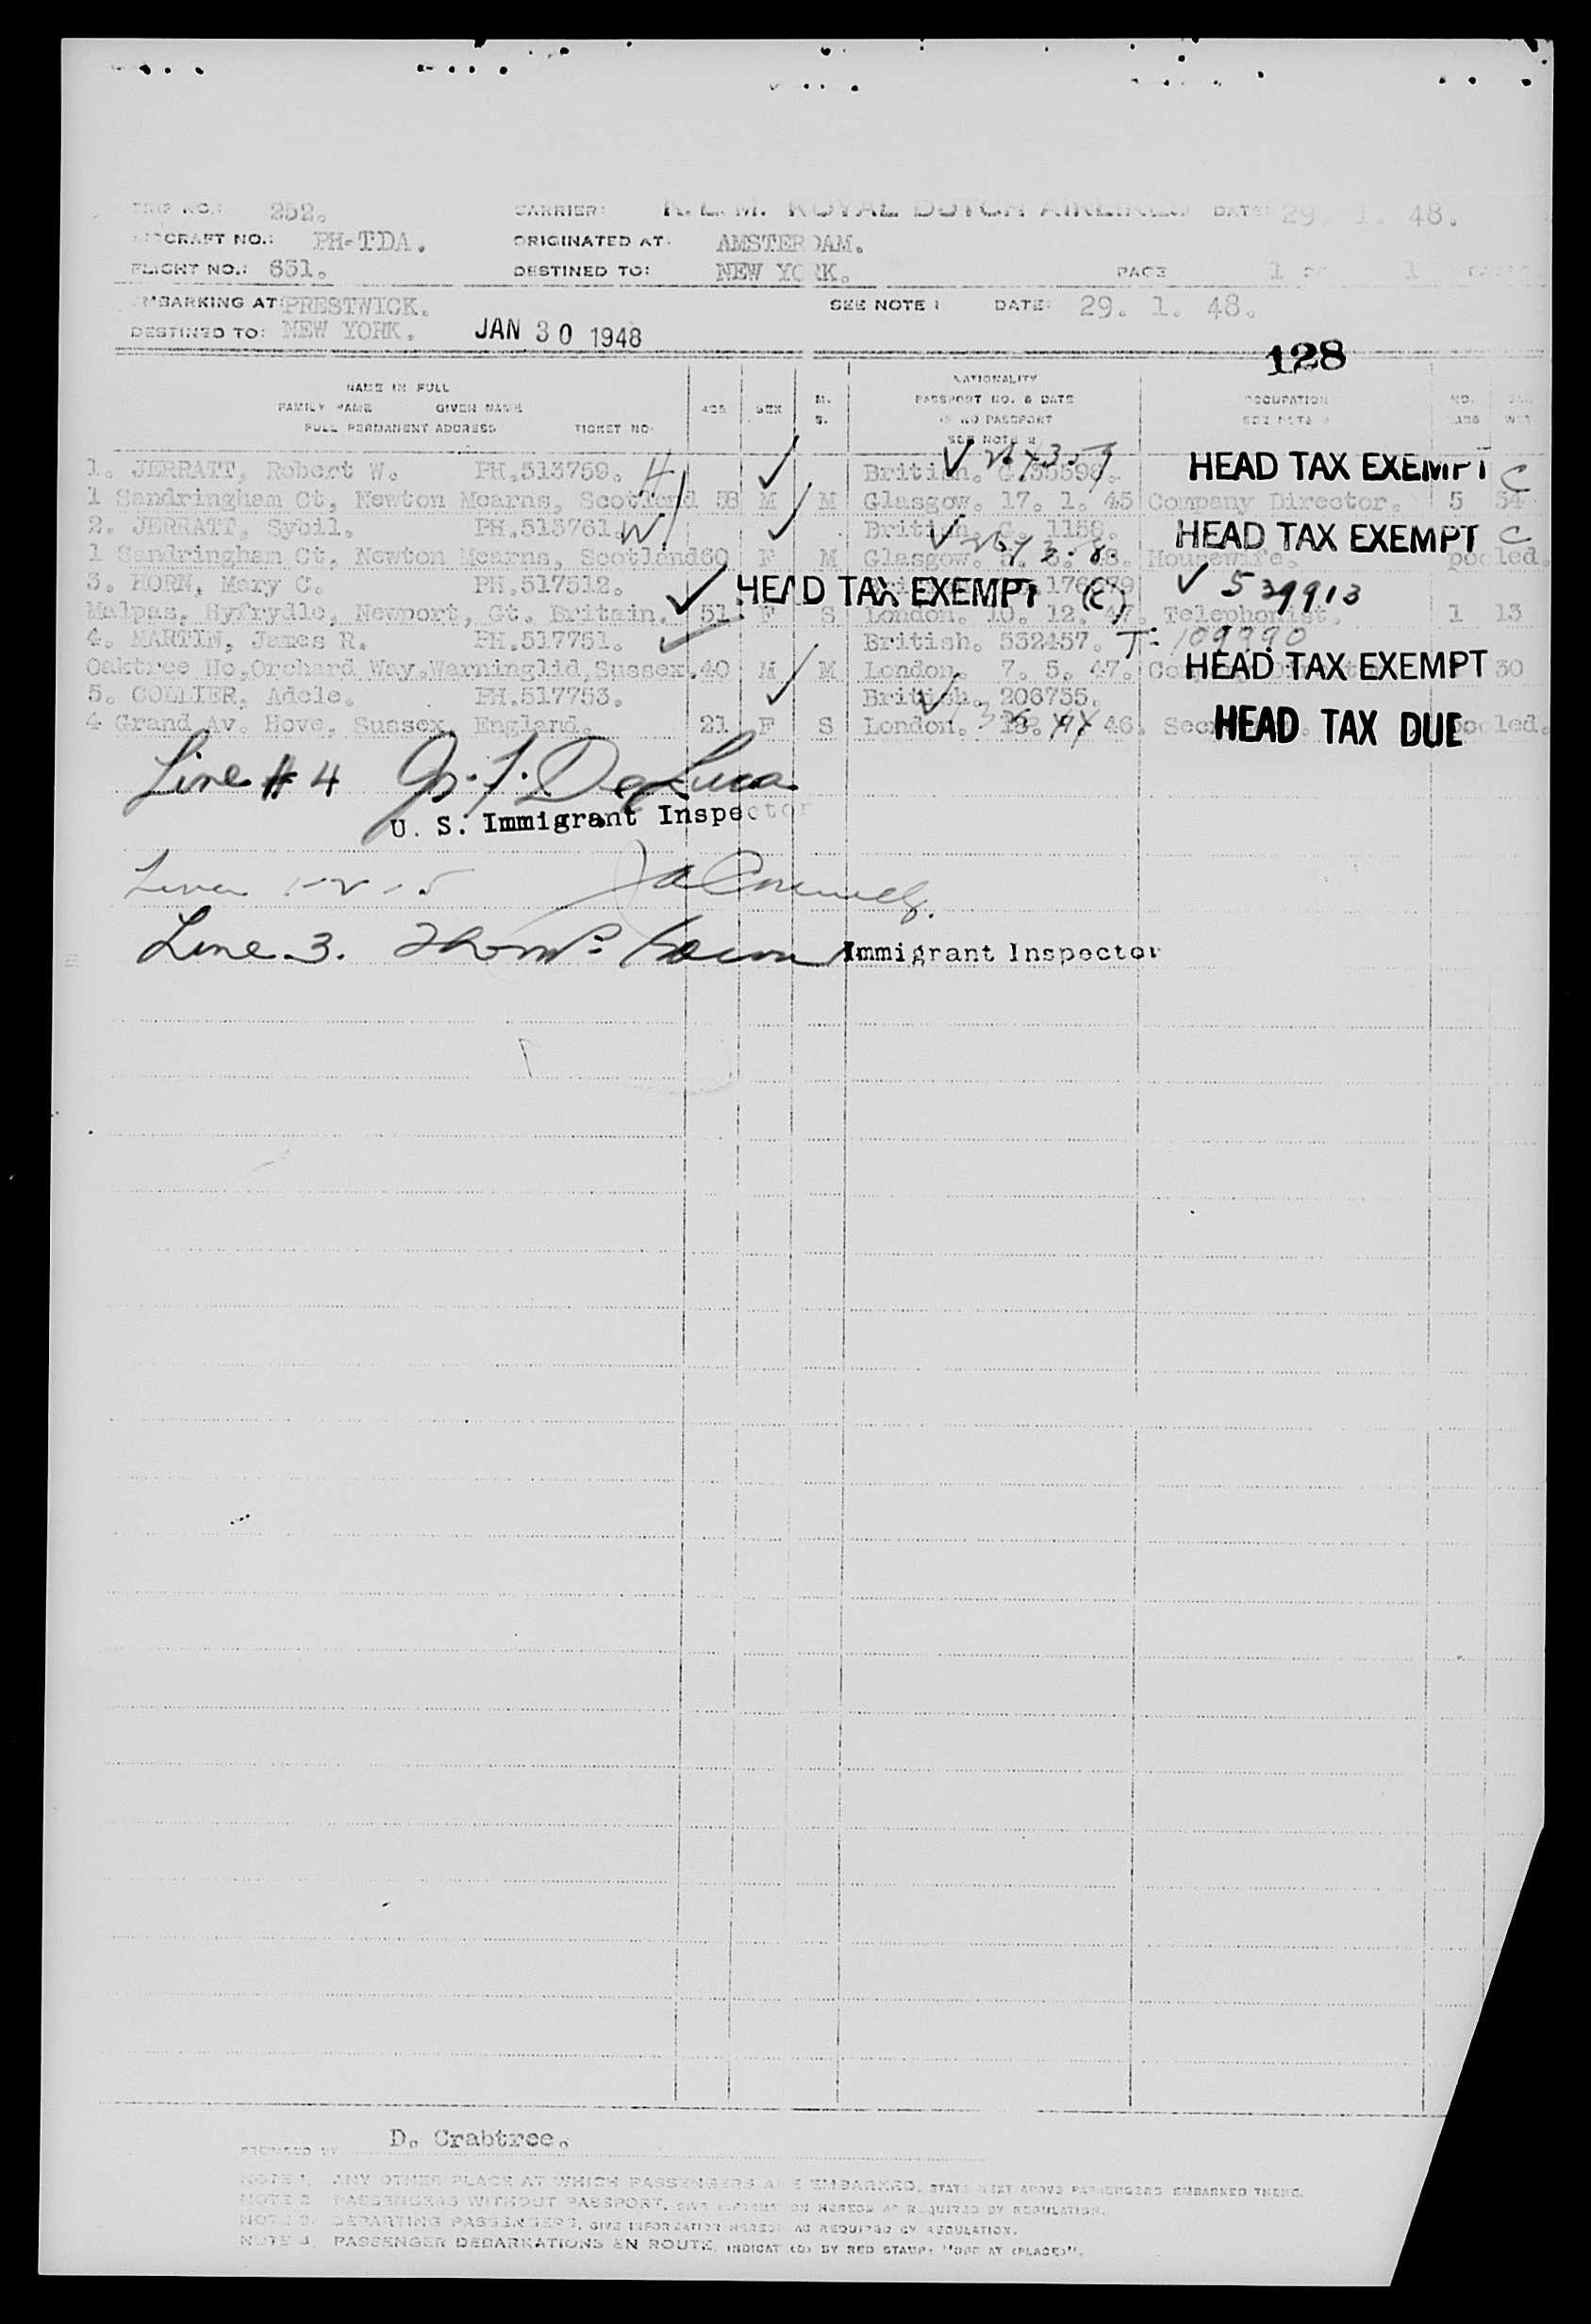 252. CARRIER: K. L. M. ROYAL DUTCH AIRLINES DATE: 29. 1. 48.
AIRCRAFT NO.: PH-TDA. ORIGINATED AT: AMSTERDAM.
FLIGHT NO.: 651. DESTINED TO: NEW YORK. PAGE 1 OF 1 PAGES
EMBARKING AT PRESTWICK. SEE NOTE 1 DATE: 29. 1. 48.
DESTINED TO: NEW YORK. JAN 30 1948
128
NAME IN FULL NATIONALITY
FAMILY NAME GIVEN NAME AGE SEX M. S. PASSPORT NO. & DATE OCCUPATION NO.
FULL PERMANENT ADDRESS TICKET NO. IF NO PASSPORT
SEE NOTE 2
1. JERRATT, Robert W. PH.513759. H British. HEAD TAX EXEMPT C
1 Sandringham Ct, Newton Mearns, Scotland 58 M M Glasgow. 17. 1. 45 Company Director. 5 54
2. JERRATT, Sybil. PH.513761. W British. G. 1158. HEAD TAX EXEMPT C
1 Sandringham Ct, Newton Mearns, Scotland 60 F M Glasgow. Housewife. pooled.
3. HORN, Mary C. PH.517512. HEAD TAX EXEMPT (C) 539913
Malpas, Hyfrydle, Newport, Gt. Britain. 51 F S London. 10. 12. 47. Telephonist. 1 13
4. MARTIN, James R. PH.517751. British. 532457. T-109990
Oaktree Ho,Orchard Way,Warninglid,Sussex. 40 M M London. 7. 5. 47. HEAD TAX EXEMPT 30
5. COLLIER, Adele. PH.517753. British. 206755.
4 Grand Av. Hove, Sussex, England. 21 F S London. 46. HEAD TAX DUE pooled.
Line # 4 De Luca
U. S. Immigrant Inspector
Lines 1-2-5
Line 3. Immigrant Inspector
PREPARED BY D. Crabtree.
NOTE 1. ANY OTHER PLACE AT WHICH PASSENGERS ARE EMBARKED, STATE NEXT ABOVE PASSENGERS EMBARKED THERE.
NOTE 2. PASSENGERS WITHOUT PASSPORT, GIVE INFORMATION HEREON AS REQUIRED BY REGULATION.
NOTE 3. DEPARTING PASSENGERS, GIVE INFORMATION HEREON AS REQUIRED BY REGULATION.
NOTE 4. PASSENGER DEBARKATIONS EN ROUTE, INDICATED BY RED STAMP: "OFF AT (PLACE)".